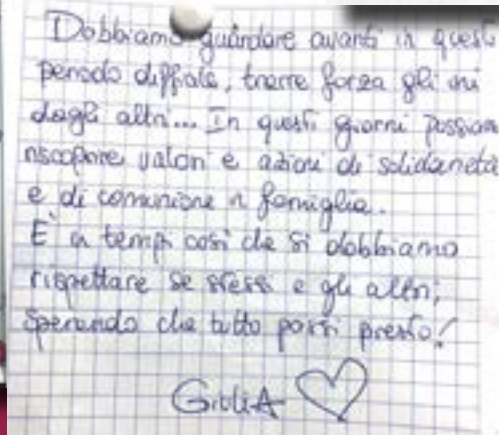 Dobbiamo guardare avanti in questo
periodo difficile, trarre forza gli uni
dagli altri... In questi giorni possiamo
riscoprire valori e azioni di solidarietà
e di comunione in famiglia.
È in tempi così che si dobbiamo
rispettare se stessi e gli altri,
sperando che tutto passi presto!
GiuliA ♡